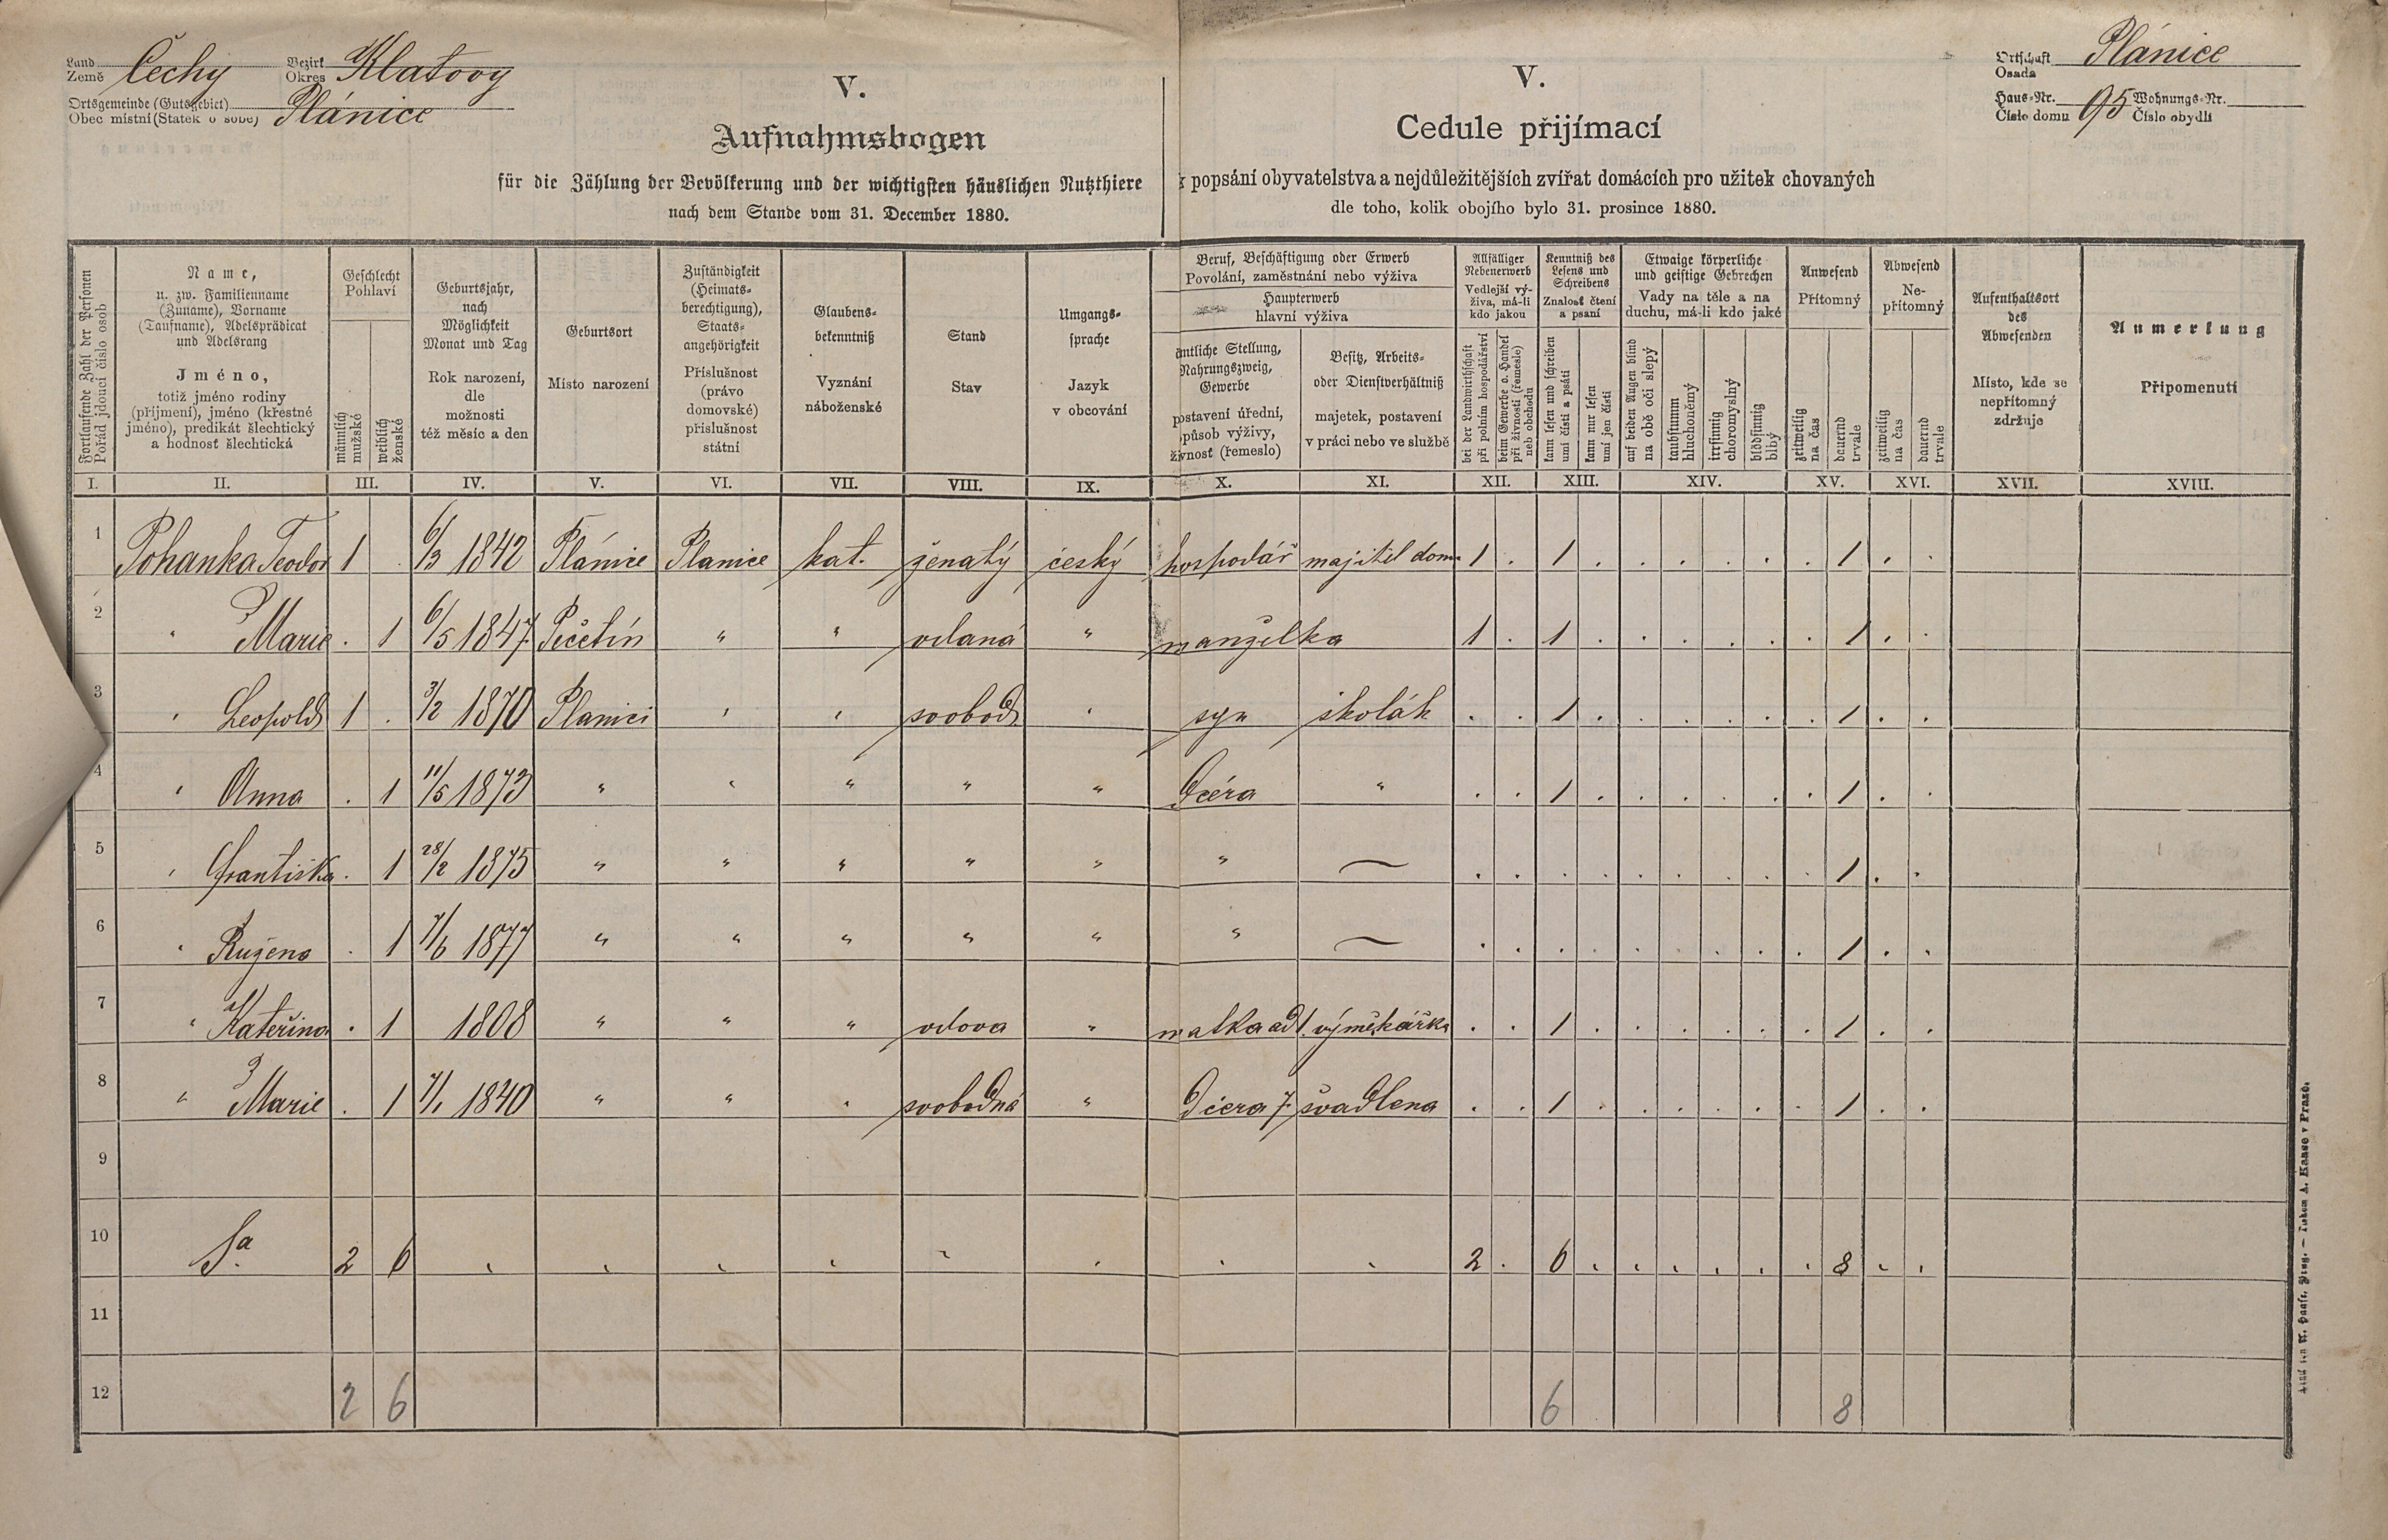 Land
Země Čechy
Bezirk
Okres Klatovy
Ortsgemeinde (Gutsgebiet)
Obec místní (Statek o sobě) Plánice
V.
Aufnahmsbogen
für die Zählung der Bevölkerung und der wichtigsten häuslichen Nutzthiere
nach dem Stande vom 31. December 1880.
V.
Cedule přijímací
k popsání obyvatelstva a nejdůležitějších zvířat domácích pro užitek chovaných
dle toho, kolik obojího bylo 31. prosince 1880.
Ortschaft
Osada Plánice
Haus-Nr.
Číslo domu 95
Wohnungs-Nr.
Číslo obydlí
Fortlaufende Zahl der Personen
Pořád jdoucí číslo osob
Name,
u. zw. Familienname
(Zuname), Vorname
(Taufname), Adelsprädicat
und Adelsrang
Jméno,
totiž jméno rodiny
(příjmení), jméno (křestné
jméno), predikát šlechtický
a hodnosť šlechtická
Geschlecht
Pohlaví
männlich
mužské
weiblich
ženské
Geburtsjahr,
nach
Möglichkeit
Monat und Tag
Rok narození,
dle
možnosti
též měsíc a den
Geburtsort
Místo narození
Zuständigkeit
(Heimats-
berechtigung),
Staats-
angehörigkeit
Příslušnost
(právo
domovské)
příslušnost
státní
Glaubens-
bekenntniß
Vyznání
náboženské
Stand
Stav
Umgangs-
sprache
Jazyk
v obcování
Beruf, Beschäftigung oder Erwerb
Povolání, zaměstnání nebo výživa
Haupterwerb
hlavní výživa
ämtliche Stellung,
Nahrungszweig,
Gewerbe
postavení úřední,
způsob výživy,
živnosť (řemeslo)
Besitz, Arbeits-
oder Dienstverhältniß
majetek, postavení
v práci nebo ve službě
Allfälliger
Nebenerwerb
Vedlejší vý-
živa, má-li
kdo jakou
bei der Landwirthschaft
při polním hospodářství
beim Gewerbe o. Handel
při živnosti (řemesle)
neb obchodu
Kenntniß des
Lesens und
Schreibens
Znalost čtení
a psaní
kann lesen und schreiben
umí čísti a psáti
kann nur lesen
umí jen čísti
Etwaige körperliche
und geistige Gebrechen
Vady na těle a na
duchu, má-li kdo jaké
auf beiden Augen blind
na obě oči slepý
taubstumm
hluchoněmý
irrsinnig
choromyslný
blödsinnig
blbý
Anwesend
Přítomný
zeitweilig
na čas
dauernd
trvale
Abwesend
Ne-
přítomný
zeitweilig
na čas
dauernd
trvale
Aufenthaltsort
des
Abwesenden
Místo, kde se
nepřítomný
zdržuje
Anmerkung
Připomenutí
I. II. III. IV. V. VI. VII. VIII. IX. X. XI. XII. XIII. XIV. XV. XVI. XVII. XVIII.
1 Pohanka Teodor 1 . 6/3 1842 Plánice Planice kat. ženatý český hospodář majitel domu 1 . 1 . . . . . . 1 . .
2 " Marie . 1 6/5 1847 Pečetín " " vdaná " manželka 1 . 1 . . . . . . 1 . .
3 " Leopold 1 . 3/2 1870 Planici " " svobod. " syn školák . . 1 . . . . . . 1 . .
4 " Anna . 1 11/5 1873 " " " " " dcéra " . . 1 . . . . . . 1 . .
5 " Františka . 1 28/2 1875 " " " " " " — . . . . . . . . . 1 . .
6 " Ružena . 1 7/6 1877 " " " " " " — . . . . . . . . . 1 . .
7 " Kateřina . 1 1808 " " " vdova " matka ad 1. výměnkářka . . 1 . . . . . . 1 . .
8 " Marie . 1 7/1 1840 " " " svobodná " dcera 7. švadlena . . 1 . . . . . . 1 . .
9
10 Sa. 2 6 2 . 6 . . . . . . 8 . .
11
12 2 6 6 8